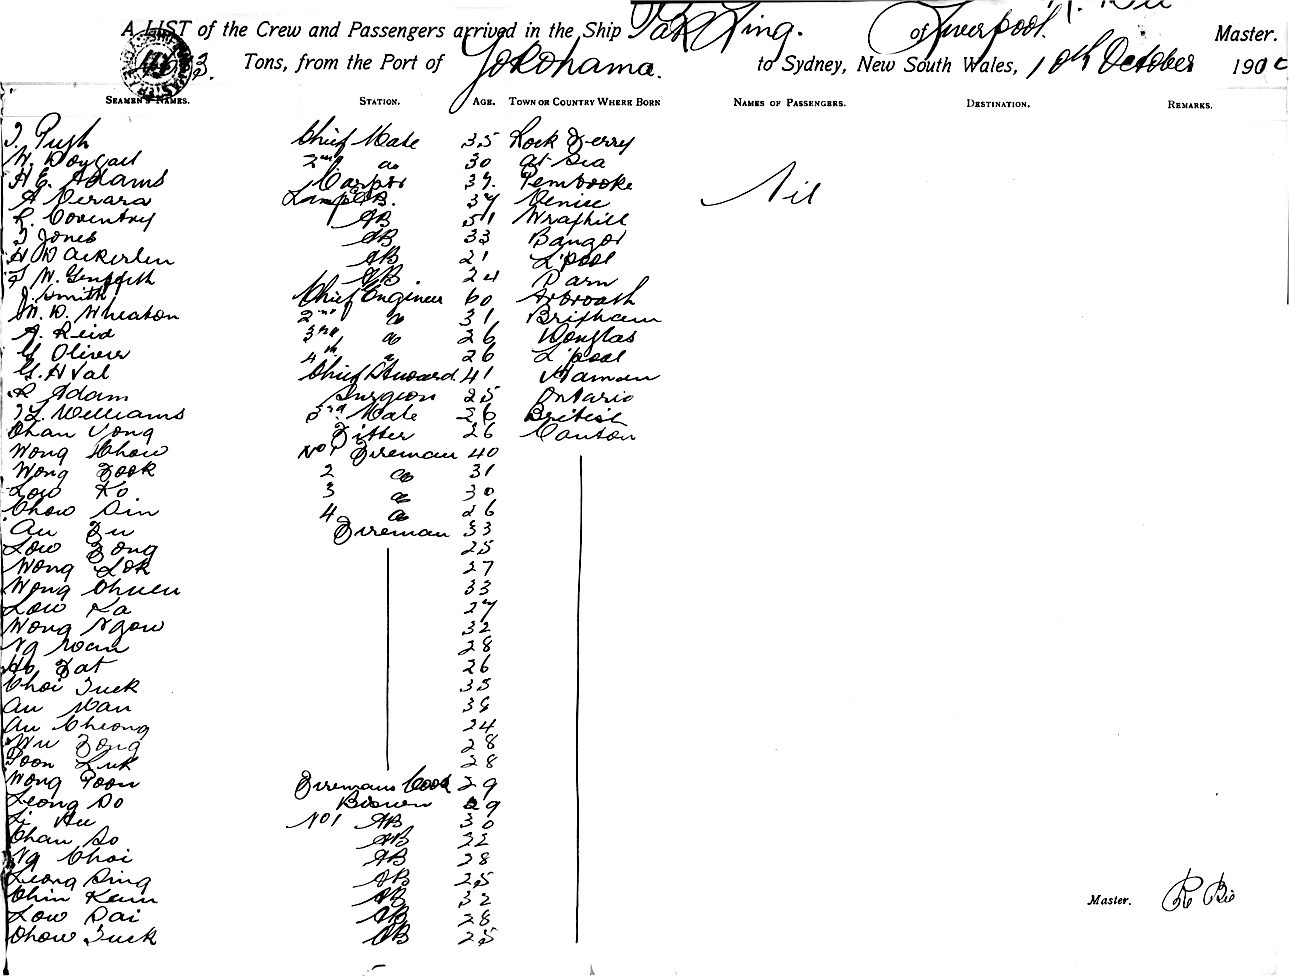 A LIST of the Crew and Passengers arrived in the Ship Pak Ling. of Liverpool. Master.
Tons, from the Port of Yokohama. to Sydney, New South Wales, 10th October 190
SEAMEN'S NAMES. STATION. AGE. TOWN OR COUNTRY WHERE BORN NAMES OF PASSENGERS. DESTINATION. REMARKS.
J. Pugh Chief Mate 35 Rock Ferry
W. 2nd do 30 At Sea
H E. Adams 39. Pembroke Nil
A Perara 37 Venice
R. Coventry AB 51
J Jones AB 33 Bangor
H D Ackerlen AB 21 L'pool
W. Griffith AB. 24
J. Smith Chief Engineer 60 Arbroath
W. D. Wheaton 2nd do 31 Brixham
A. Reid 3rd do 26 Douglas
G Oliver 4th do 26 L'pool
G. H Val Chief Steward 41
R Adam Surgeon 25 Ontario
J L. Williams 3rd Mate 26 British
Chan Vong Fitter 26 Canton
Wong Chow No 1 Fireman 40
Wong Fook 2 do 31
Low Ko. 3 do 30
Chow Sin 4 do 26
Au Fu Fireman 33
Low Fong 25
Wong Lok 27
Wong Chuen 33
Low Ka 27
Wong Ngow 32
Ng 28
Ho Fat 26
Choi Tuck 35
Au Man 38
Au Cheong 24
Wu Fong 28
Poon Luk 28
Wong Poon Firemans Cook 29
Leong So 29
Li No 1 AB 30
Chan So AB 22
Ng Choi AB 28
Leong Sing AB 25
Chin Keun AB 32 Master. R Bie
Low Dai AB 28
Chow Tuck AB 25